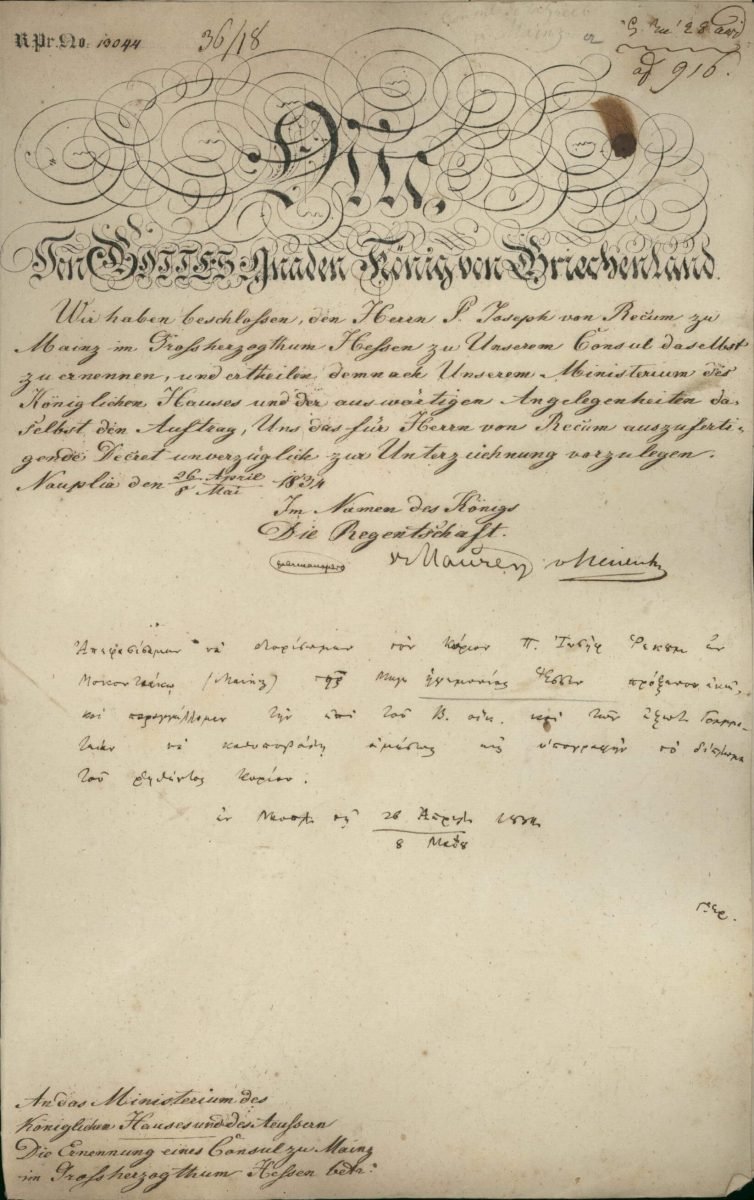 R.Pr.No. 13044
36/18
ad 916.
OTTO,
Von GOTTES Gnaden König von Griechenland.
Wir haben beschlossen, den Herrn P. Joseph von Recum zu
Mainz im Grossherzogthum Hessen zu Unserem Consul daselbst
zu ernennen, und ertheilen demnach Unserem Ministerium des
Königlichen Hauses und der auswärtigen Angelegenheiten da-
selbst den Auftrag, Uns das für Herrn von Recum auszuferti-
gende Decret unverzüglich zur Unterzeichnung vorzulegen.
Nauplia den 26 April / 8 Mai 1834
Im Namen des Königs
Die Regentschaft.
v. Maurer
Ἀπεφασίσαμεν νὰ διορίσωμεν τὸν Κύριον Π. Ἰωσὴφ Ῥεκουμ ἐν
(Mainz) τῆς Μεγ. ἡγεμονίας Ἕσσεν πρόξενον
καὶ παραγγέλλομεν τὴν ἐπὶ τοῦ Β. οἴκ. καὶ τῶν ἐξωτ. Γραμμα-
τείαν νὰ καθυποβάλῃ ἀμέσως εἰς ὑπογραφὴν τὸ δίπλωμα
τοῦ ῥηθέντος Κυρίου.
ἐν Ναυπλ. τῇ 26 Ἀπριλ. / 8 Μαΐου 1834
An das Ministerium des
Königlichen Hauses und des Aeussern
Die Ernennung eines Consul zu Mainz
im Grossherzogthum Hessen betr.